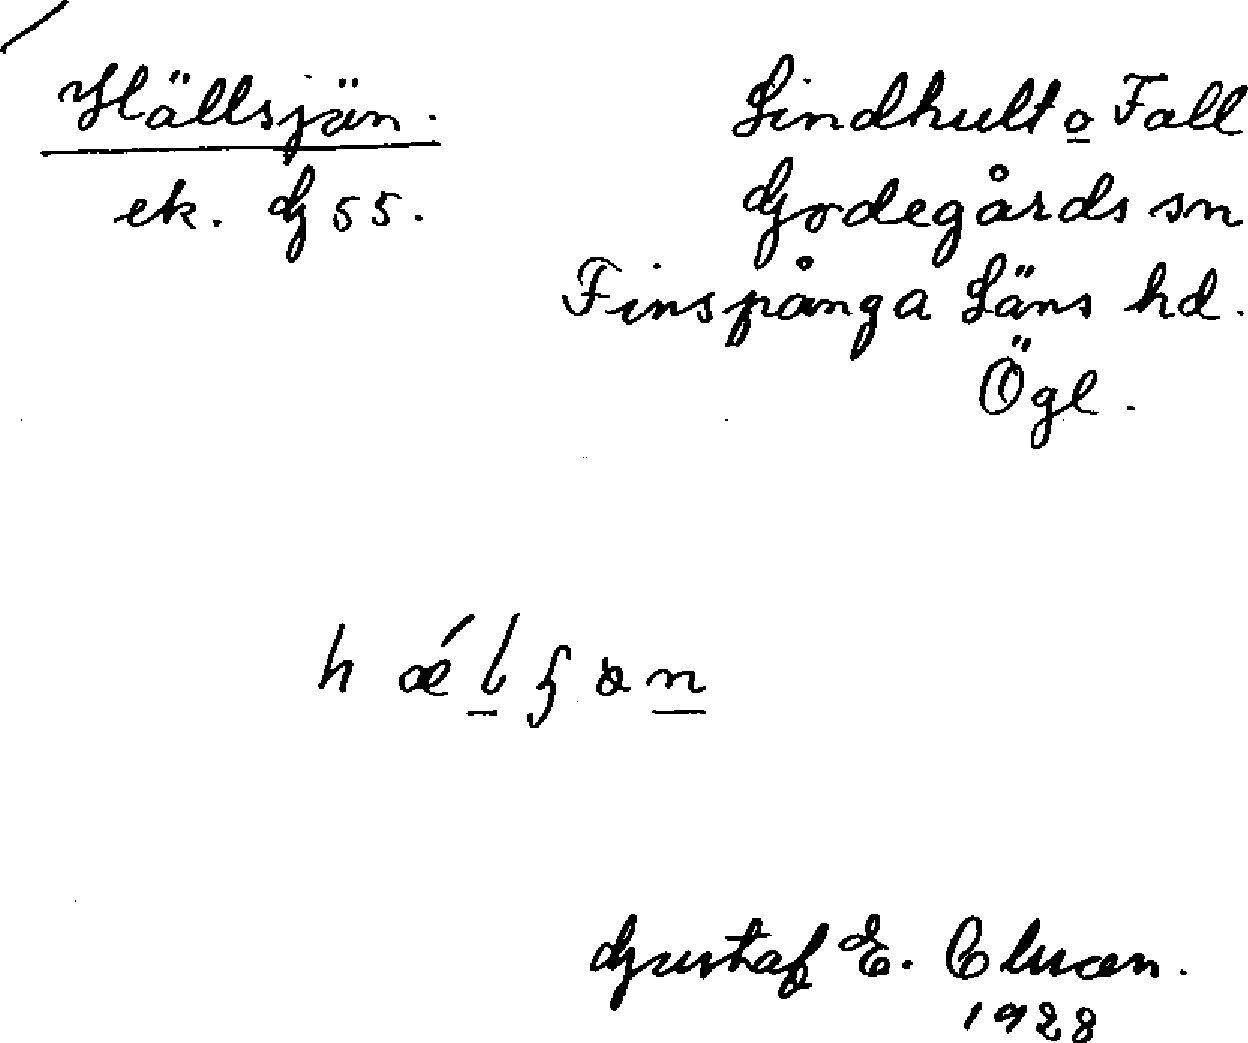 Hällsjän.
ek. G 55.
Lindhult o Fall
Godegårds sn
Finspånga Läns hd.
Ögl.
Gustaf E.
1928